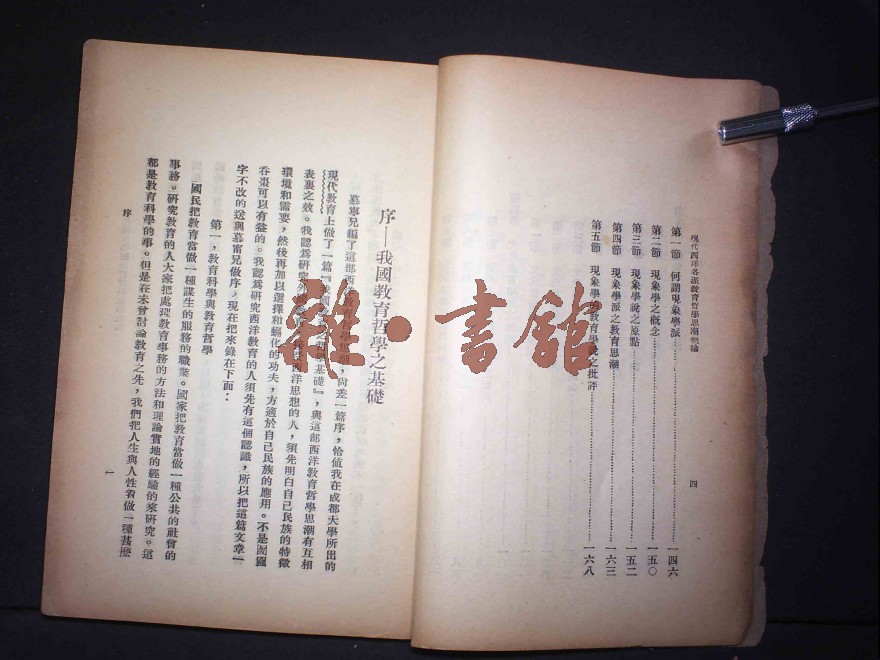 現代西洋各派教育哲學思潮概論
四
第一節 何謂現象學派……一四六
第二節 現象學之概念……一五〇
第三節 現象學說之原點……一五二
第四節 現象學派之教育思潮……一六三
第五節 現象學的教育學說之批評……一六八
序——我國教育哲學之基礎
慕寧兄編了這部西洋教育哲學思潮，尚差一篇序，恰值我在成都大學所出的
現代教育上做了一篇『我國教育哲學之基礎』，與這部西洋教育哲學思潮有互相
表裏之效。我認爲研究外國西洋思想的人，須先明白自己民族的特徵
環境和需要，然後再加以選擇和鎔化的功夫，方適於自己民族的應用。不是囫圇
吞棗可以有益的。我認爲研究西洋教育的人須先有這個認識，所以把這篇文章一
字不改的送與慕甯兄做序，現在把來錄在下面：
第一，教育科學與教育哲學
國民把教育當做一種謀生的服務的職業。國家把教育當做一種公共的社會的
事務。研究教育的人大家把處理教育事務的方法和理論實地的經驗的來研究。這
都是教育科學的事。但是在未曾討論教育之先，我們把人生與人性看做一種甚麽
序
一
雜·書館